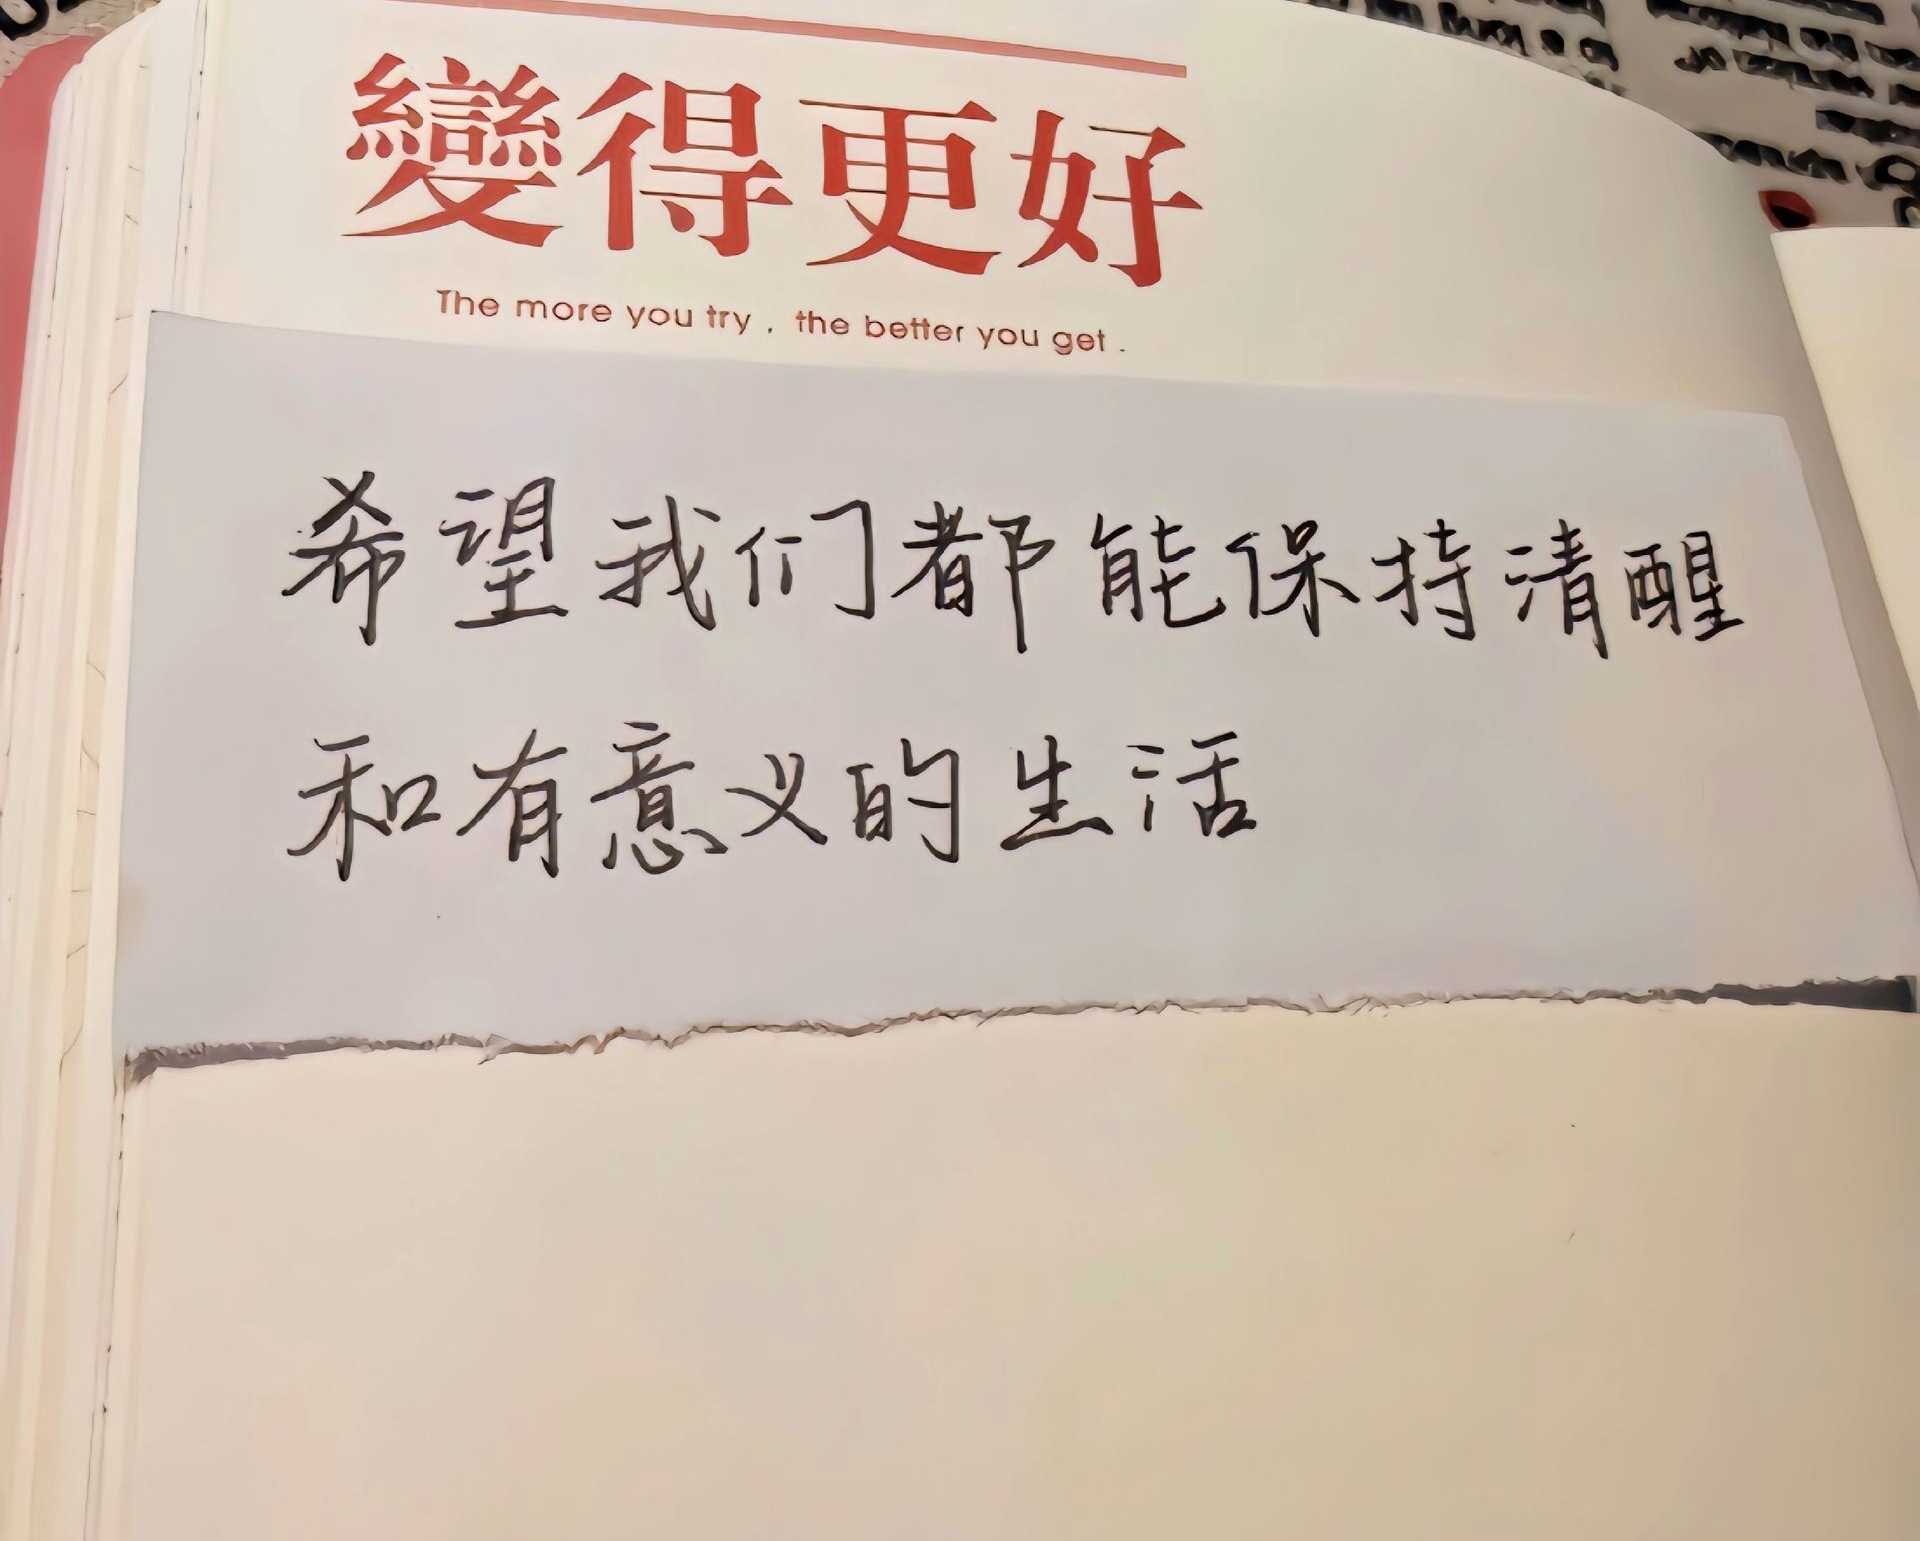 變得更好
The more you try , the better you get .
希望我们都能保持清醒
和有意义的生活